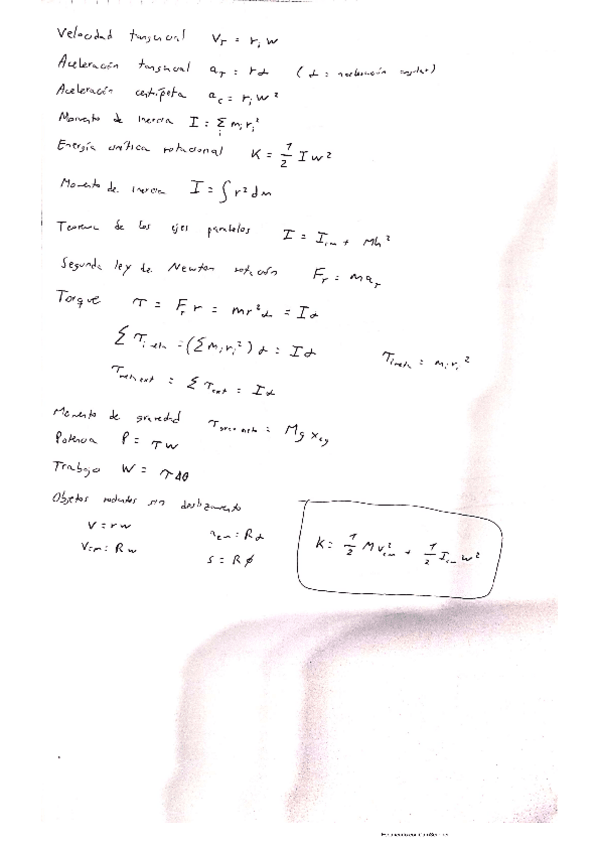 Velocidad tangencial v_T = r_i w
Aceleración tangencial a_T = r α (α = aceleración angular)
Aceleración centrípeta a_c = r_i w²
Momento de inercia I = Σ_i m_i r_i²
Energía cinética rotacional K = 1/2 I w²
Momento de inercia I = ∫ r² dm
Teorema de los ejes paralelos I = I_cm + Mh²
Segunda ley de Newton rotación F_T = m a_T
Torque τ = F_T r = m r² α = I α
Σ τ_i neta = (Σ m_i r_i²) α = I α τ_i neta = m_i r_i²
τ_net ext = Σ τ_ext = I α
Momento de gravedad = M g x_cg
Potencia P = τ w
Trabajo W = τ Δθ
Objetos rodantes sin deslizamiento
V = r w a_cm = R α
V_cm = R w s = R ϕ
K = 1/2 M v_cm² + 1/2 I_cm w²